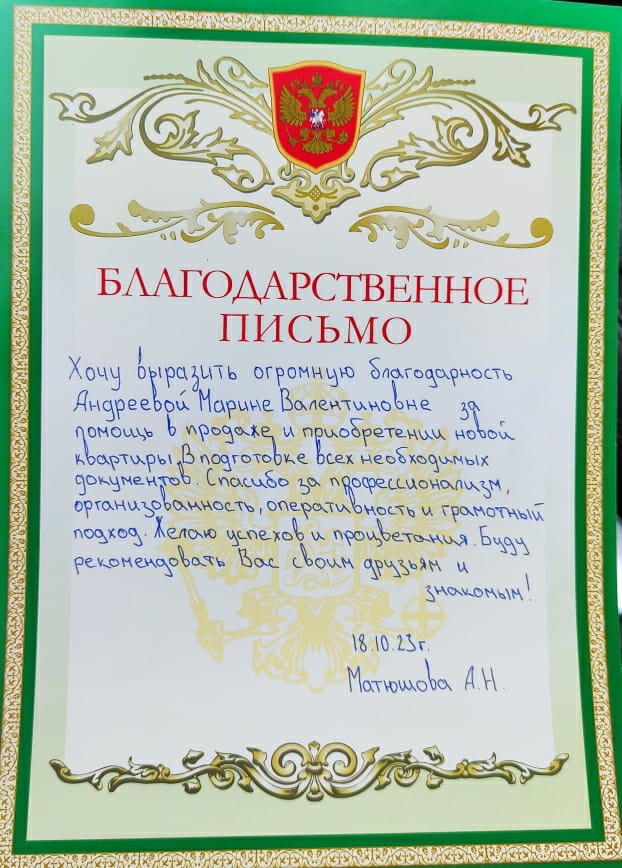 БЛАГОДАРСТВЕННОЕ
ПИСЬМО
Хочу выразить огромную благодарность
Андреевой Марине Валентиновне за
помощь в продаже и приобретении новой
квартиры. В подготовке всех необходимых
документов. Спасибо за профессионализм,
организованность, оперативность и грамотный
подход. Желаю успехов и процветания. Буду
рекомендовать Вас своим друзьям и
знакомым!
18.10.23г.
Матюшова А.Н.